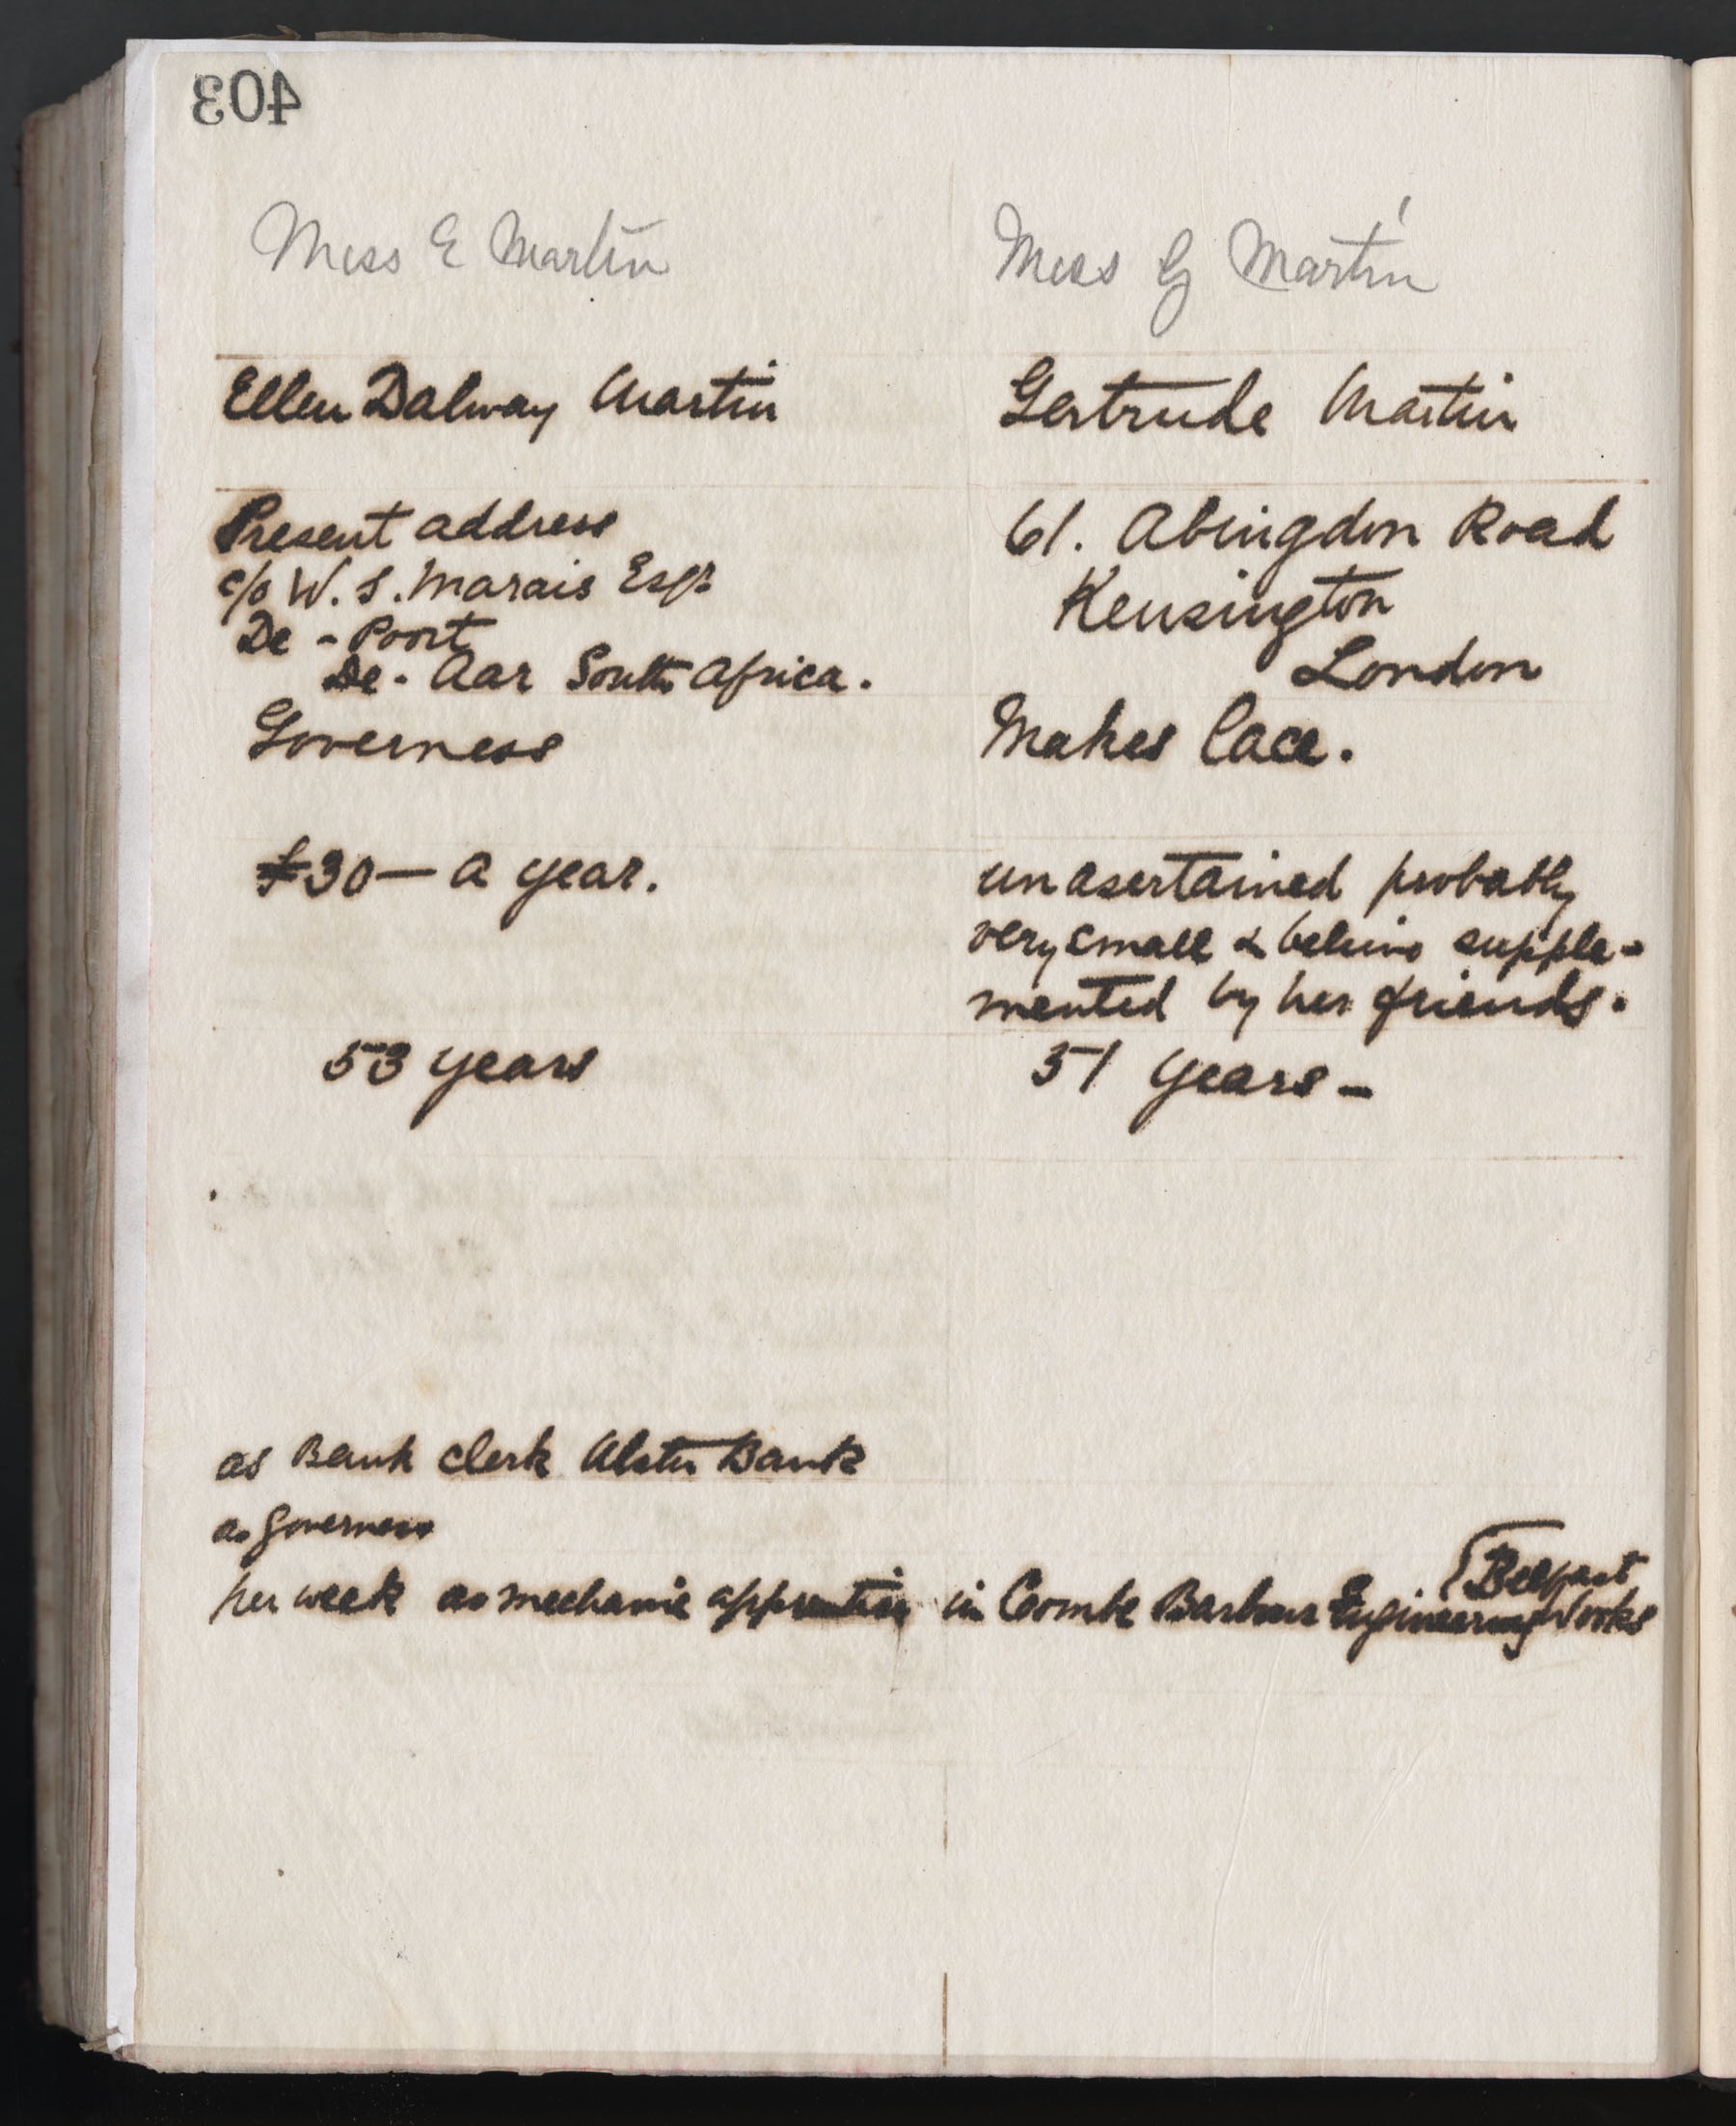 403
Miss E Martin
Miss G Martin
Ellen Dalway Martin
Gertrude Martin
Present address
c/o W. S. Marais Esqr
De - Poort
De - Aar South Africa.
61. Abingdon Road
Kensington
London
Governess
Makes lace.
£30 — a year.
unasertained probably
very small & believe supple-
mented by her friends.
53 years
51 years -
as Bank clerk Ulster Bank
as governess
per week as mechanic apprentice in Coombe Barbour Engineering Works
(Belfast